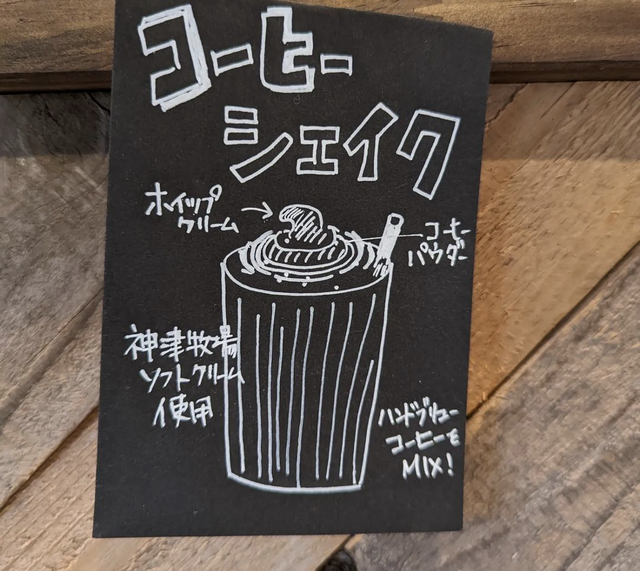 コーヒー
シェイク
ホイップ
クリーム
コーヒー
パウダー
神津牧場の
ソフトクリーム
使用
ハンドブリュー
コーヒーを
MIX!